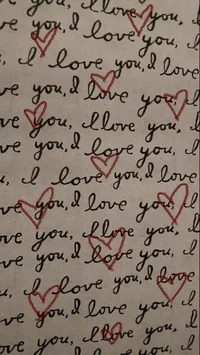 you, I love you, I
ve you, I love you, I
u, I love you, I love
ve you, I love you, I
ve you, I love you, I
ve you, I love you, I
u, I love you, I love
ve you, I love you, I
ve you, I love you, I
ve you, I love you, I
u, I love you, I love
ve you, I love you, I
ve you, I love you, I